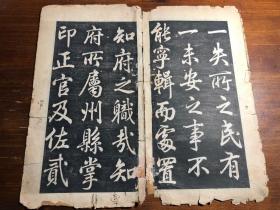 一失所之民有
一未安之事不
能寧輯而處置
知府之職哉知
府所屬州縣掌
印正官及佐貳